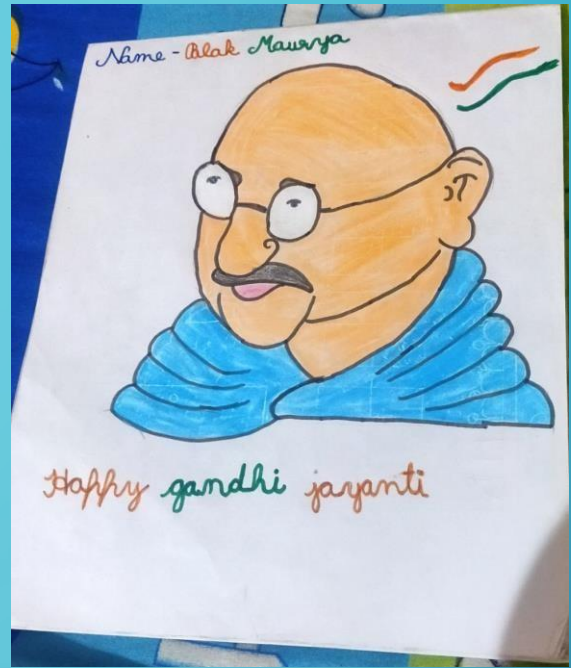 Name - Palak Maurya
Happy gandhi jayanti